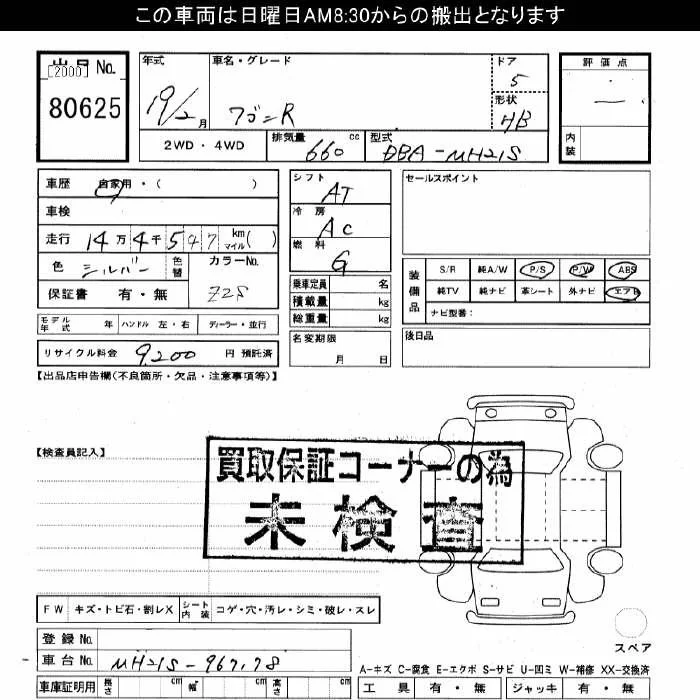 この車両は日曜日AM8:30からの搬出となります
出品 No.
[2000]
80625
年式
19/2月
車名・グレード
ワゴンR
ドア
5
形状
HB
評価点
内装
2WD ・ 4WD
排気量
660 cc
型式
DBA-MH21S
車歴 自家用 ・ ( )
車検
走行 14万4千547 km マイル ( )
色 シルバー 色替
カラーNo.
Z2S
保証書 有 ・ 無
シフト
AT
冷房
AC
燃料
G
乗車定員 名
積載量 kg
総重量 kg
名変期限
月 日
セールスポイント
装備品
S/R 純A/W P/S P/W ABS
純TV 純ナビ 革シート 外ナビ エアB
ナビ型番:
後日品
モデル年式 年 ハンドル 左・右 ディーラー・並行
リサイクル料金 9,200 円 預託済
【出品店申告欄(不良箇所・欠品・注意事項等)】
【検査員記入】
買取保証コーナーの為
未検査
FW キズ・トビ石・割レX シート内装 コゲ・穴・汚レ・シミ・破レ・スレ
登録 No.
車台 No. MH21S-967178
車庫証明用 長さ cm 幅 cm 高さ cm
スペア
A-キズ C-腐食 E-エクボ S-サビ U-凹ミ W-補修 XX-交換済
工具 有 ・ 無 ジャッキ 有 ・ 無